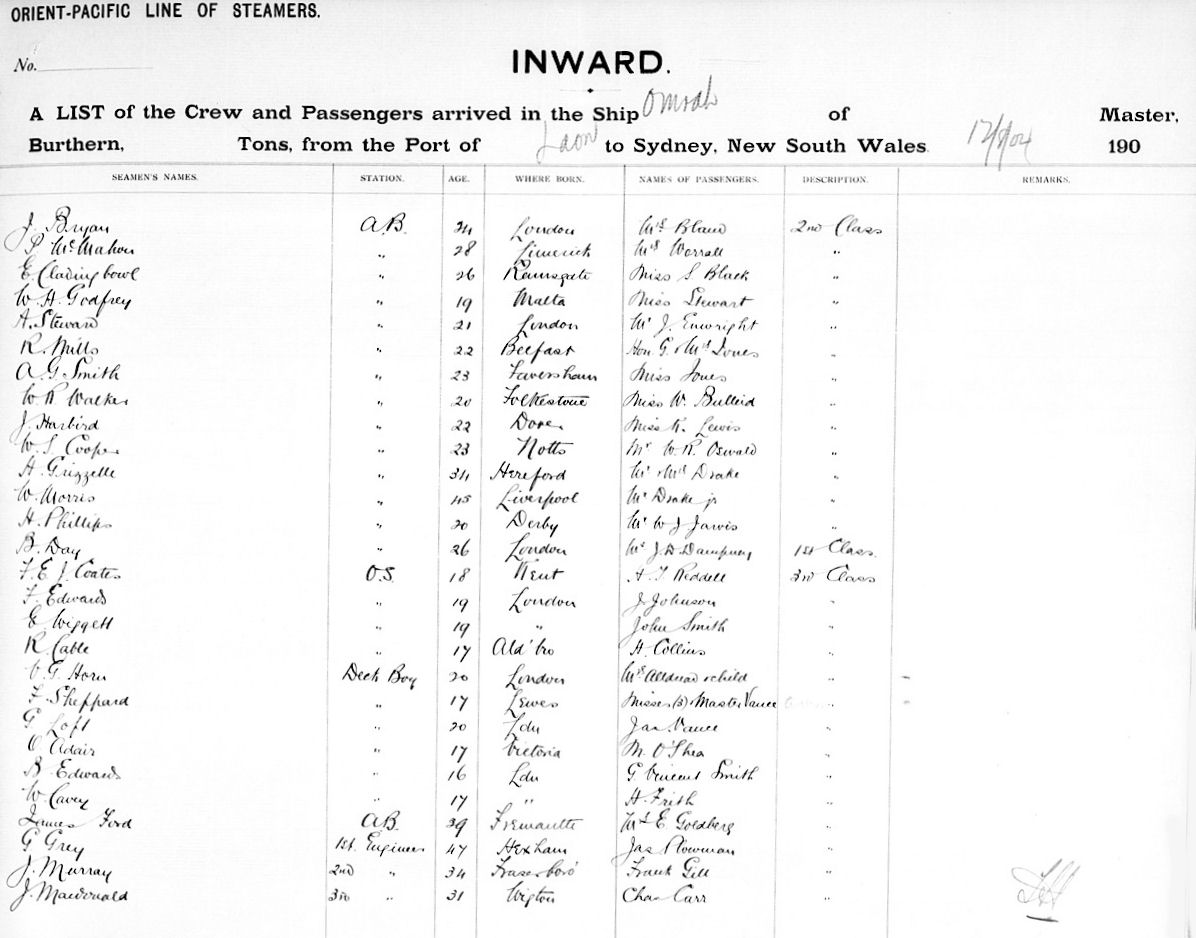 ORIENT-PACIFIC LINE OF STEAMERS.
No.
INWARD.
A LIST of the Crew and Passengers arrived in the Ship Omrah of Master,
Burthern, Tons, from the Port of Ldon to Sydney, New South Wales. 190
SEAMEN'S NAMES. STATION. AGE. WHERE BORN. NAMES OF PASSENGERS. DESCRIPTION. REMARKS.
J. Bryan A.B. 24 London Mrs Bland 2nd Class
P. McMahon " 28 Limerick Mrs Worrall "
E Claringbowl " 26 Ramsgate Miss S. Black "
W. H. Godfrey " 19 Malta Miss Stewart "
A. Steward " 21 London Mr J. Enwright "
R. Mills " 22 Belfast Hon. G. & Mrs Jones "
A. G. Smith " 23 Faversham Miss Jones "
W. R. Walker " 20 Folkestone Miss W. Bulleid "
J. Harbird " 22 Dover Miss K. Lewis "
W. S. Cooper " 23 Notts Mr W. R. Oswald "
H. Grizzelle " 34 Hereford Mr & Mrs Drake "
W. Morris " 45 Liverpool Mr Drake jr "
H. Phillips " 20 Derby Mr W J Jarvis "
B. Day " 26 London J. D. Dampney 1st Class
F. E. J. Coates O.S. 18 Kent A. T. Reddell 3rd Class
F. Edwards " 19 London J. Johnson "
E Wiggett " 19 " John Smith "
R. Cable " 17 Ald'bro H. Collins "
V. G. Horn Deck Boy 20 London Mrs & child "
F. Sheppard " 17 Lewes Misses (3) & Master Vance "
G. Loft " 20 Ldn Jas. Vance "
O Adair " 17 Victoria M. O'Shea "
B. Edwards " 16 Ldn G. Vincent Smith "
W. Cavey " 17 " H. Frith "
James Ford A.B. 39 Fremantle Mrs E. Goldberg "
G Grey 1st. Engineer 47 Hexham Jas Plowman "
J. Murray 2nd " 34 Fraserboro' Frank Gill "
J. Macdonald 3rd " 31 Wigton Chas Carr "